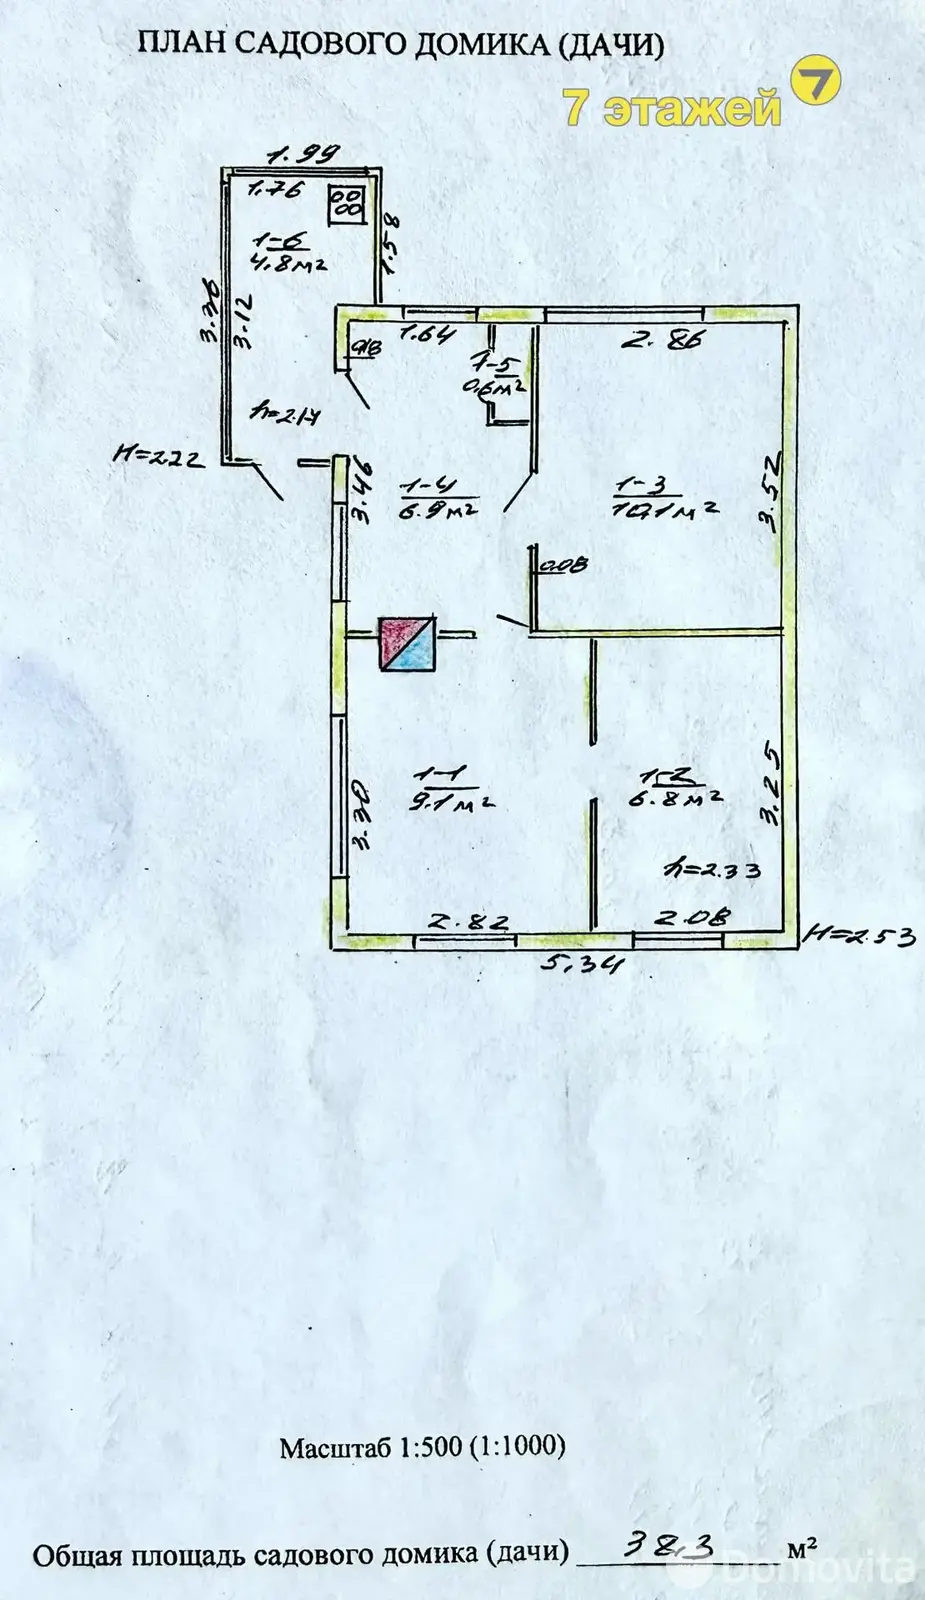 ПЛАН САДОВОГО ДОМИКА (ДАЧИ)
7 этажей 7
1.99
1.76
1-6
4.8 м²
1.58
3.36
3.12
1.64
2.86
0.18
1-5
0.6 м²
h=2.14
H=2.22
3.46
1-4
6.9 м²
1-3
10,1 м²
3.52
0.08
1-1
9.1 м²
1-2
6.8 м²
3.30
3.25
h=2.33
2.82
2.08
H=2.53
5,34
Масштаб 1:500 (1:1000)
Общая площадь садового домика (дачи) 38,3 м²
Domovita